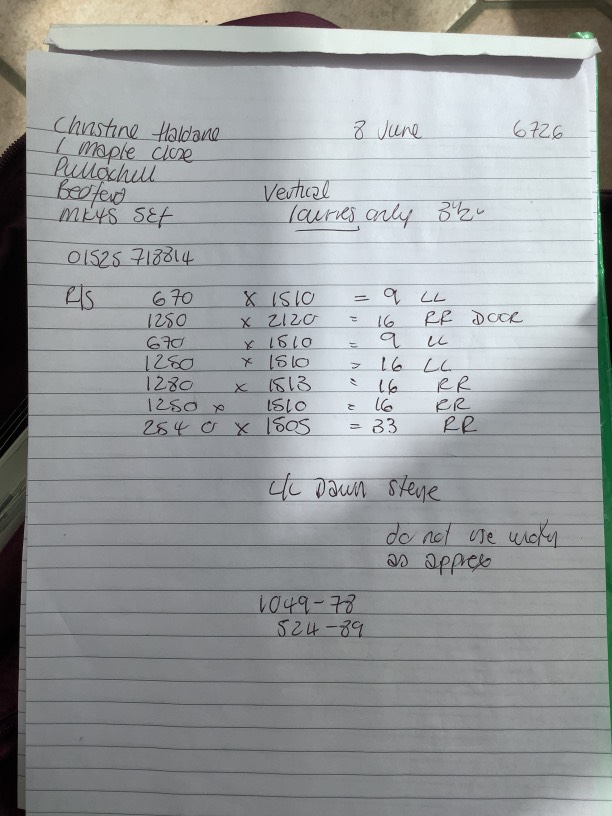 Christine Haldane 8 June 6726
1 maple close
Pulloxhill
Bedford Vertical
MK45 5EF louvres only 3½"
01525 718814
R/S 670 x 1510 = 9 LL
1250 x 2120 = 16 RR DOOR
670 x 1510 = 9 LL
1250 x 1510 = 16 LL
1280 x 1513 = 16 RR
1250 x 1510 = 16 RR
2540 x 1505 = 33 RR
C/C Dawn Steve
do not use widths
as approx
1049-78
524-89